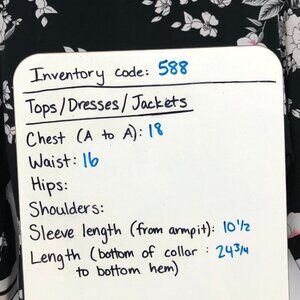 Inventory code: 588
Tops/Dresses/Jackets
Chest (A to A): 18
Waist: 16
Hips:
Shoulders:
Sleeve length (from armpit): 10 1/2
Length (bottom of collar : 24 3/4
to bottom hem)